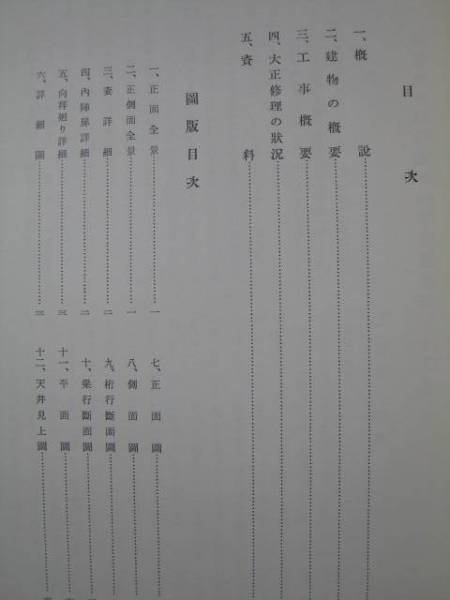 目次
一、槪說
二、建物の槪要
三、工事槪要
四、大正修理の狀況
五、資料
圖版目次
一、正面全景 一
二、正側面全景 一
三、妻詳細 二
四、內陣扉詳細 二
五、向拜廻り詳細 三
六、詳細圖 三
七、正面圖
八、側面圖
九、桁行斷面圖
十、梁行斷面圖
十一、平面圖
十二、天井見上圖